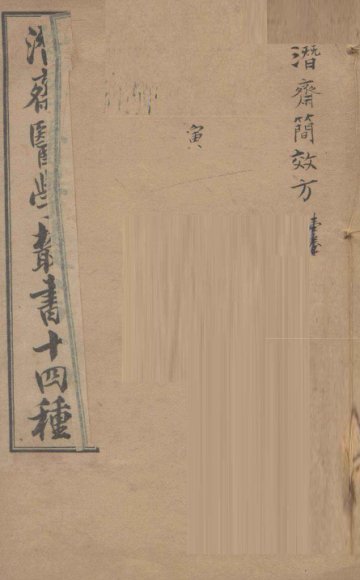 潛齋簡效方
寅
潛齋醫學叢書十四種